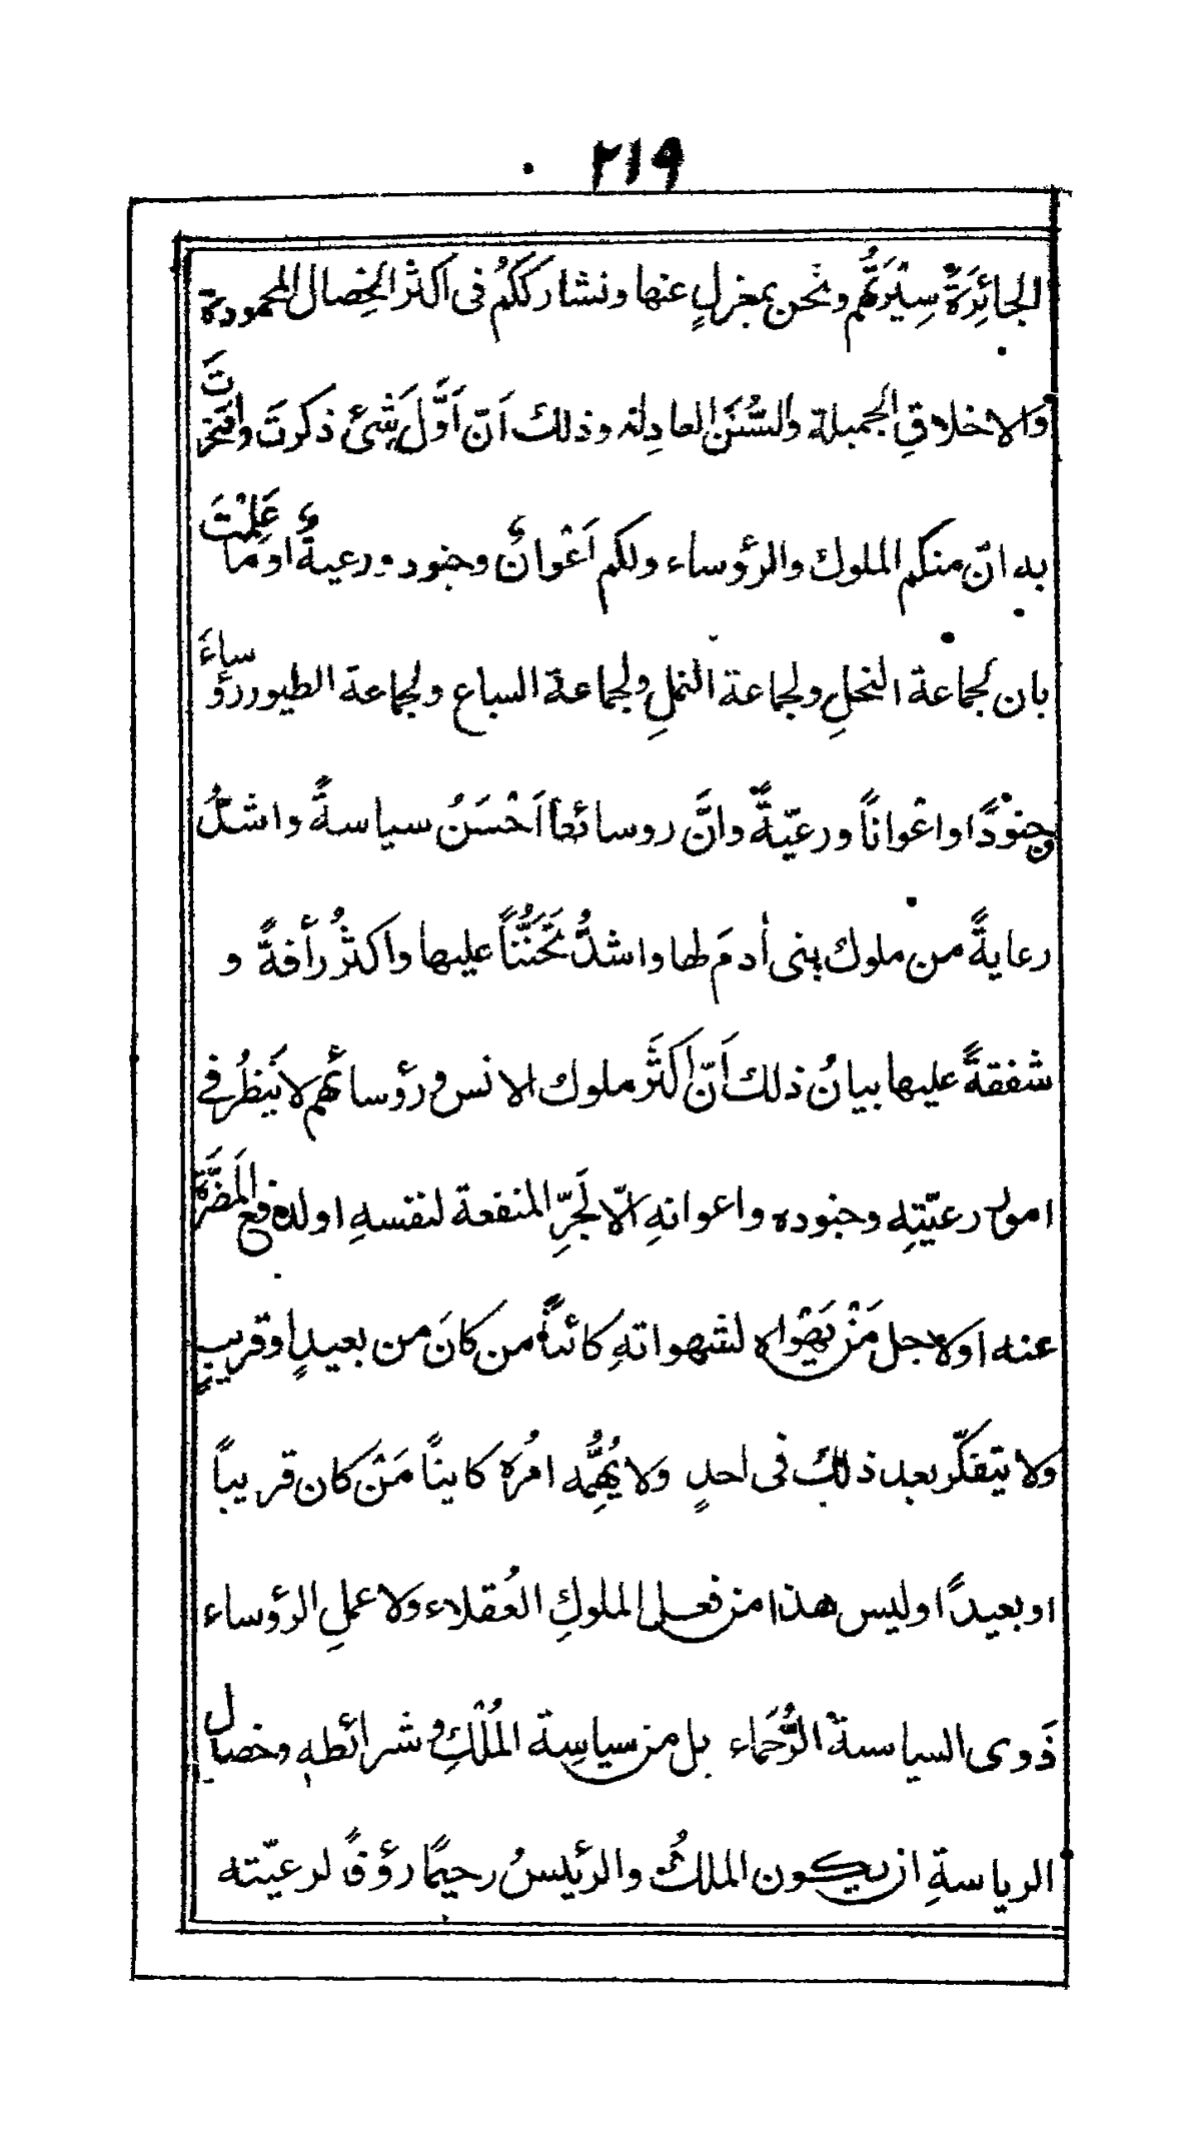 ٢١٩
الجائِرَةُ سِيْرَتُهُم ونحن بمعزلٍ عنها ونشارككُم فى اكثر الخِصال المحمودة
والاخلاقِ الجميلة والسُّنَن العادِلة وذلك اَنّ اَوَّلَ شَئٍ ذكرتَ وافتخرتَ
به انّ منكم الملوك والرؤساء ولكم اَعْوانٌ وجنود ورعيةٌ اوَمَا عَلِمْتَ
بان لجماعة النحلِ ولجماعة النملِ ولجماعة السباع ولجماعة الطيور رؤساءَ
وجنودًا واعْوانًا ورعيّةً وانَّ روسائها اَحْسَنُ سياسةً واشدُّ
رعايةً من ملوك بنى اٰدمَ لها واشدُّ تَحَنُّنًا عليها واكثرُ رأفةً و
شفقةً عليها بيانُ ذلك اَنّ اَكثَر ملوك الانس ورؤسائهم لا يَنظُر في
امور رعيّتِه وجنوده واعوانهِ الّا لَجرِّ المنفعة لنفسهِ او لدفع المَضَرَّة
عنه او لاجل مَنْ يَهْواه لشهواتهِ كائنًا من كانَ من بعيدٍ او قريبٍ
ولا يتفكّر بعد ذلك فى احدٍ ولا يُهِمُّه امُره كاينًا مَنْ كان قريبًا
او بعيدًا وليس هذا من فعل الملوكِ العُقلاء ولا عملِ الرؤساء
ذَوى السياسة الرُّحَماء بل من سياسِة المُلْكِ وشرائطهِ وخصال
الرياسةِ ان يكون الملكُ والرئيسُ رحيمًا رؤفًا لرعيّته